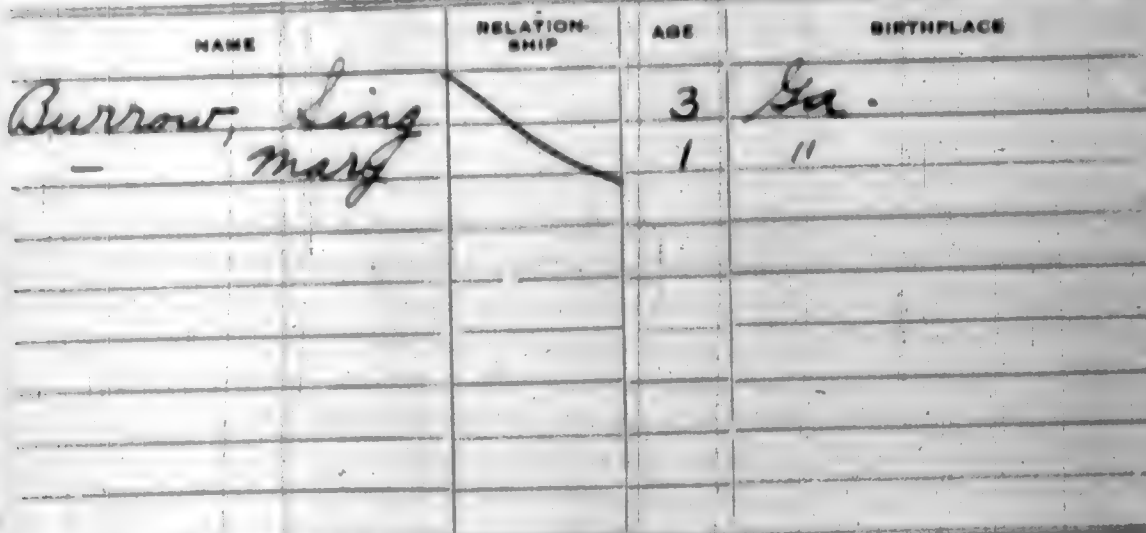 NAME RELATION-SHIP AGE BIRTHPLACE
Burrow, 3 Ga.
— Mary 1 "